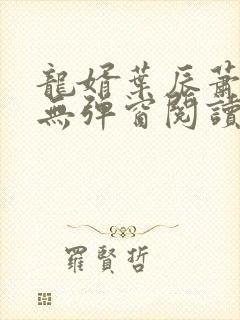 龍婿葉辰蕭
無彈窗閱讀
羅賢哲